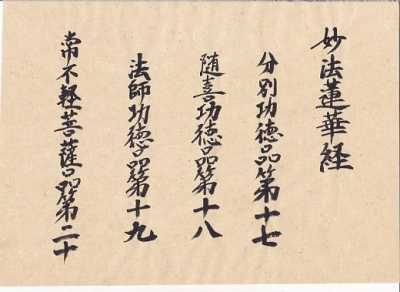 妙法蓮華経
分別功徳品第十七
随喜功徳品第十八
法師功徳品第十九
常不軽菩薩品第二十